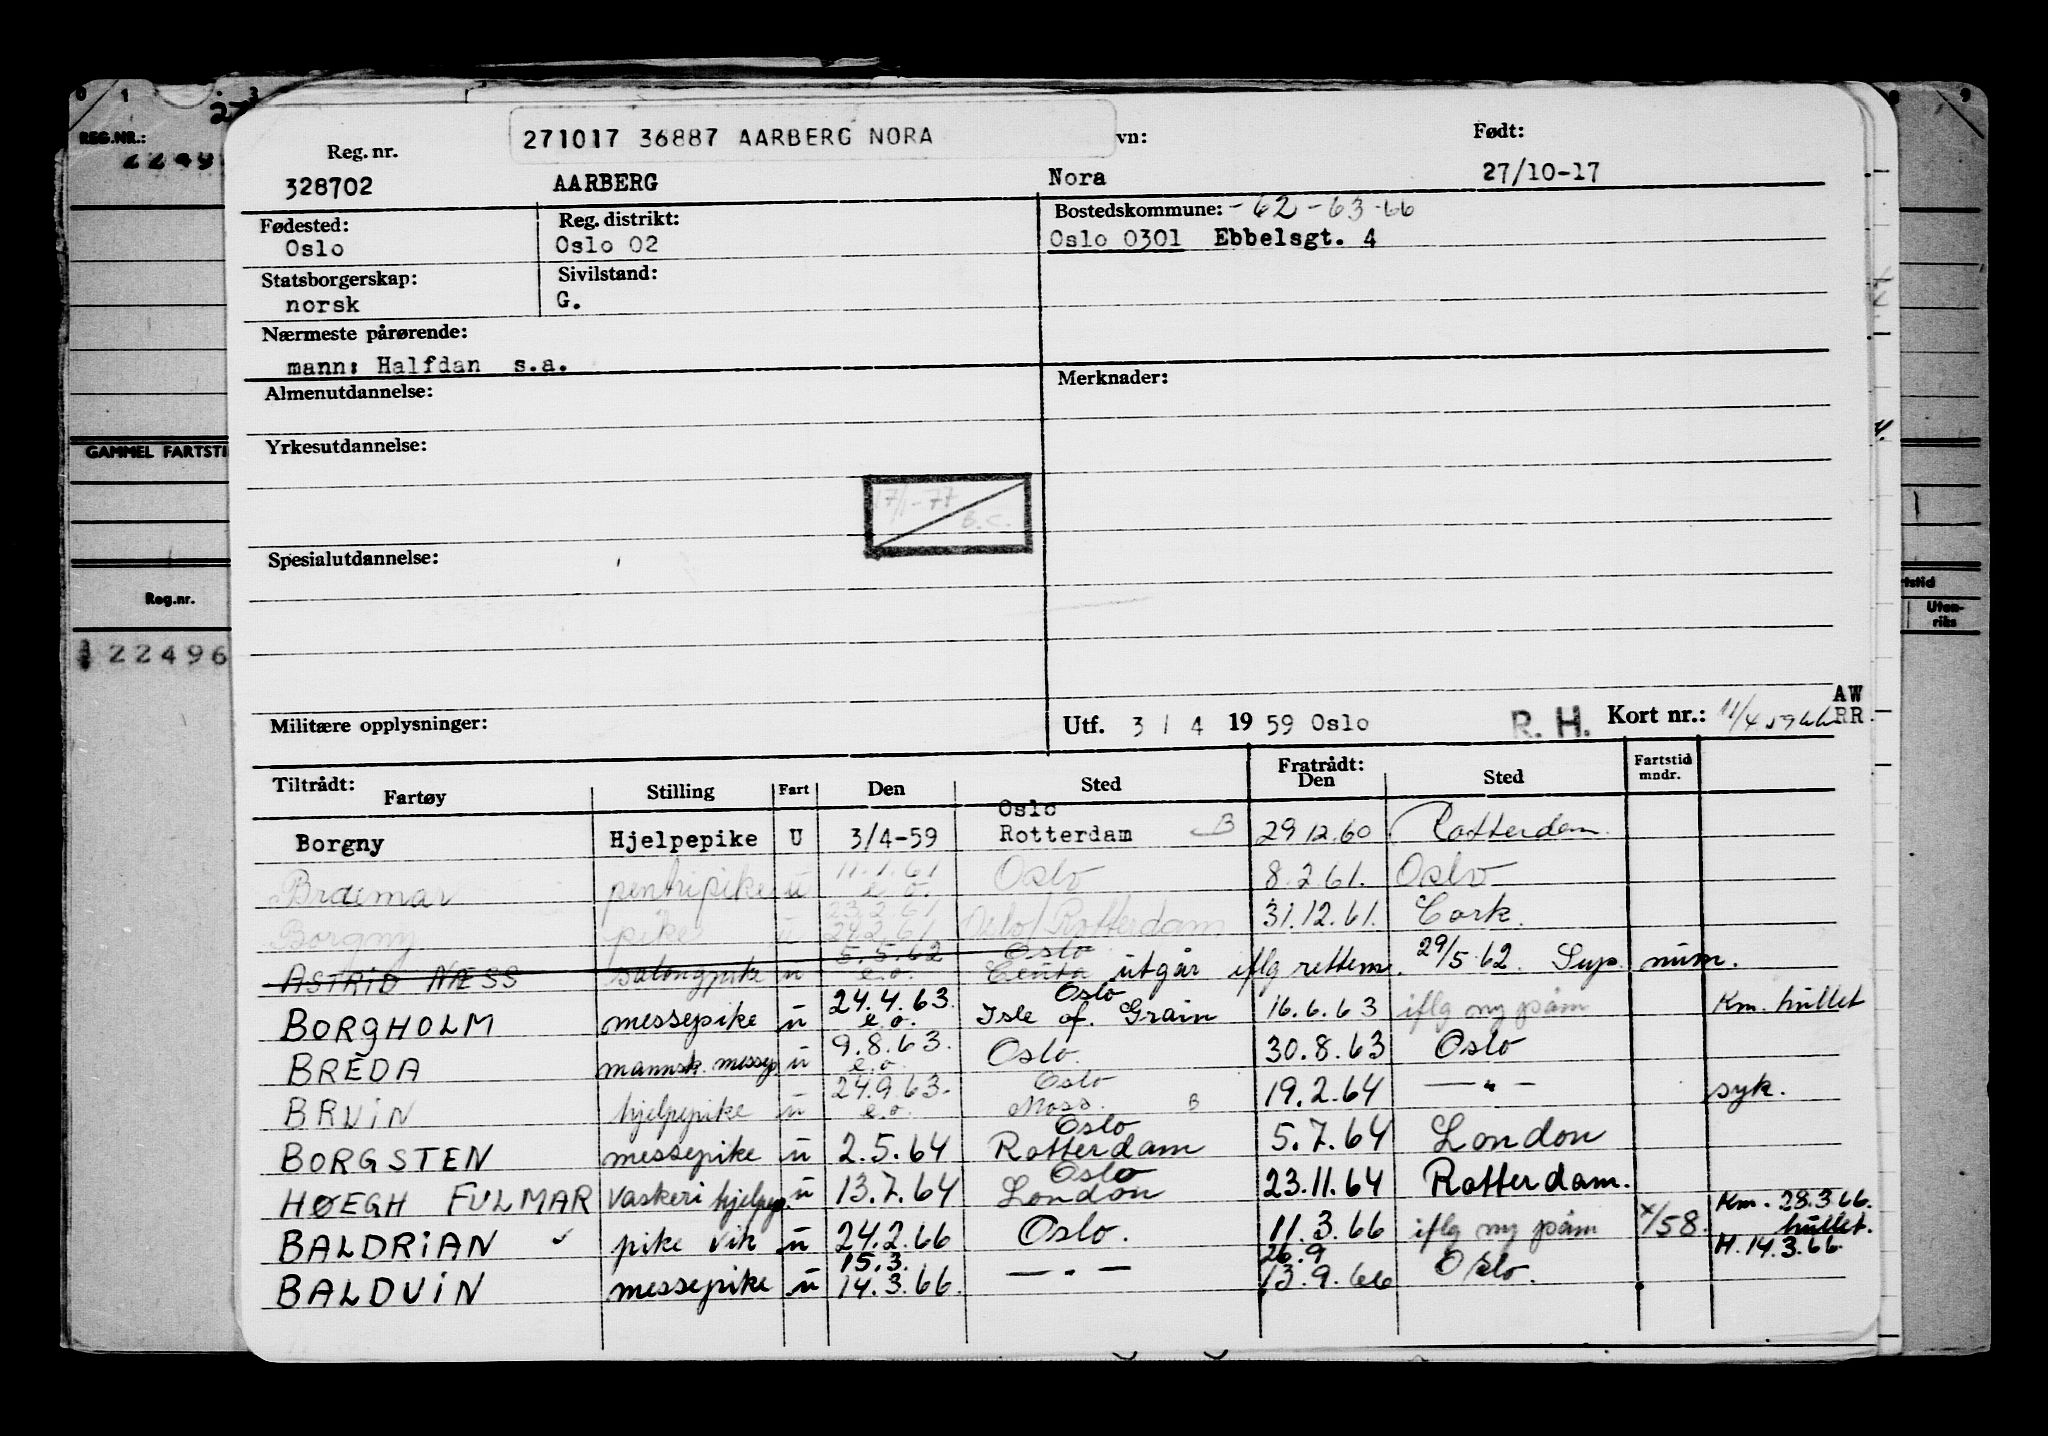 271017 36887 AARBERG NORA
Reg. nr. vn: Født:
328702 AARBERG Nora 27/10-17
Fødested: Reg. distrikt: Bostedskommune: -62-63-66
Oslo Oslo 02 Oslo 0301 Ebbelsgt. 4
Statsborgerskap: Sivilstand:
norsk G.
Nærmeste pårørende:
mann: Halfdan s.a.
Almenutdannelse: Merknader:
Yrkesutdannelse:
17/1-77
B.C.
Spesialutdannelse:
Militære opplysninger: Utf. 3 / 4 19 59 Oslo R. H. Kort nr.: AW
RR
Tiltrådt: Fratrådt:
Fartøy Stilling Fart Den Sted Den Sted Fartstid mndr.
Borgny Hjelpepike U 3/4-59 Oslo Rotterdam B 29.12.60 Rotterdam
Braemar pentripike u 11.1.61 e.o. Oslo 8.2.61. Oslo
Borgny pike u 23.2.61 24.2.61 Oslo/Rotterdam 31.12.61. Cork.
ASTRID NÆSS salongpike u 5.5.62 e.o. Oslo Ceuta utgår iflg rettem. 29/5.62. Sup. num.
BORGHOLM messepike u 24.4.63. e.o. Oslo Isle of. Grain 16.6.63 iflg ny påm Km. hullet
BREDA mannsk. messep. u 9.8.63. e.o. Oslo. 30.8.63 Oslo
BRUIN hjelpepike u 24.9.63. e.o. Oslo Moss. B 19.2.64 — " — syk.
BORGSTEN messepike u 2.5.64 Oslo Rotterdam 5.7.64 London
HØEGH FULMAR vaskeri hjelpep. u 13.7.64 Oslo London 23.11.64 Rotterdam.
BALDRIAN pike vik u 24.2.66 Oslo. 11.3.66 iflg ny påm x/58. Km. 28.3.66. hullet.
BALDUIN messepike u 15.3. 14.3.66. — " — 26.9 13.9.66 Oslo. H. 14.3.66.
0 1 3
27
REG.NR.:
GAMMEL FARTSTI
Reg.nr.
22496
rtstid
Uten-
riks
9